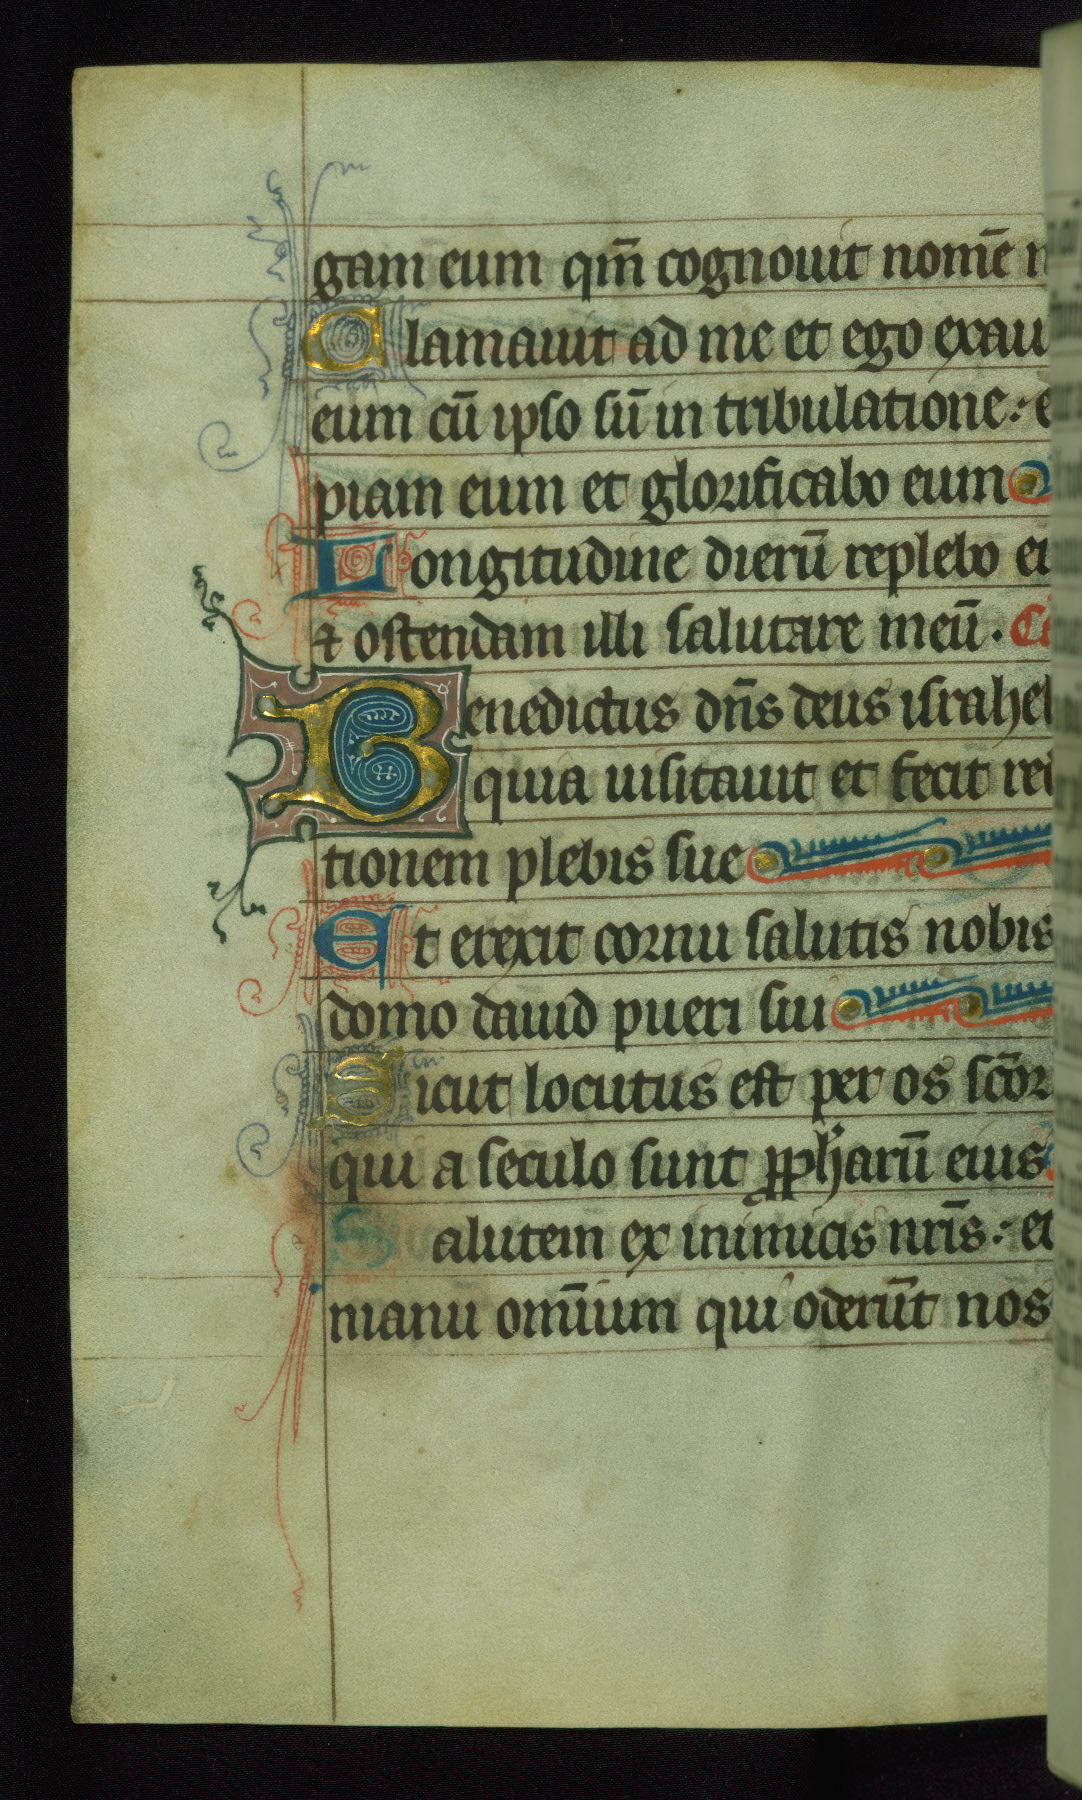 gam eum qm̄ cognouit nomē
Clamauit ad me et ego exau
eum cū ipso sū in tribulatione:
piam eum et glorificabo eum
Longitudine dierū replebo
⁊ ostendam illi salutare meū.
Benedictus dn̄s deus israhel
quia uisitauit et fecit
tionem plebis sue
Et erexit cornu salutis nobis
domo dauid pueri sui
Sicut locutus est per os sc̄or
qui a seculo sunt ꝓph̓arū eius
Salutem ex inimicis nr̄is: et
manu om̄ium qui oderūt nos